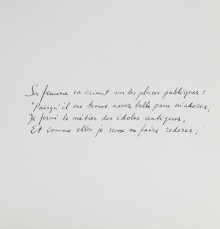 Sa femme va criant sur les places publiques :
"Puisqu'il me trouve assez belle pour m'adorer,
Je ferai le métier des idoles antiques,
Et comme elles je veux me faire redorer ;